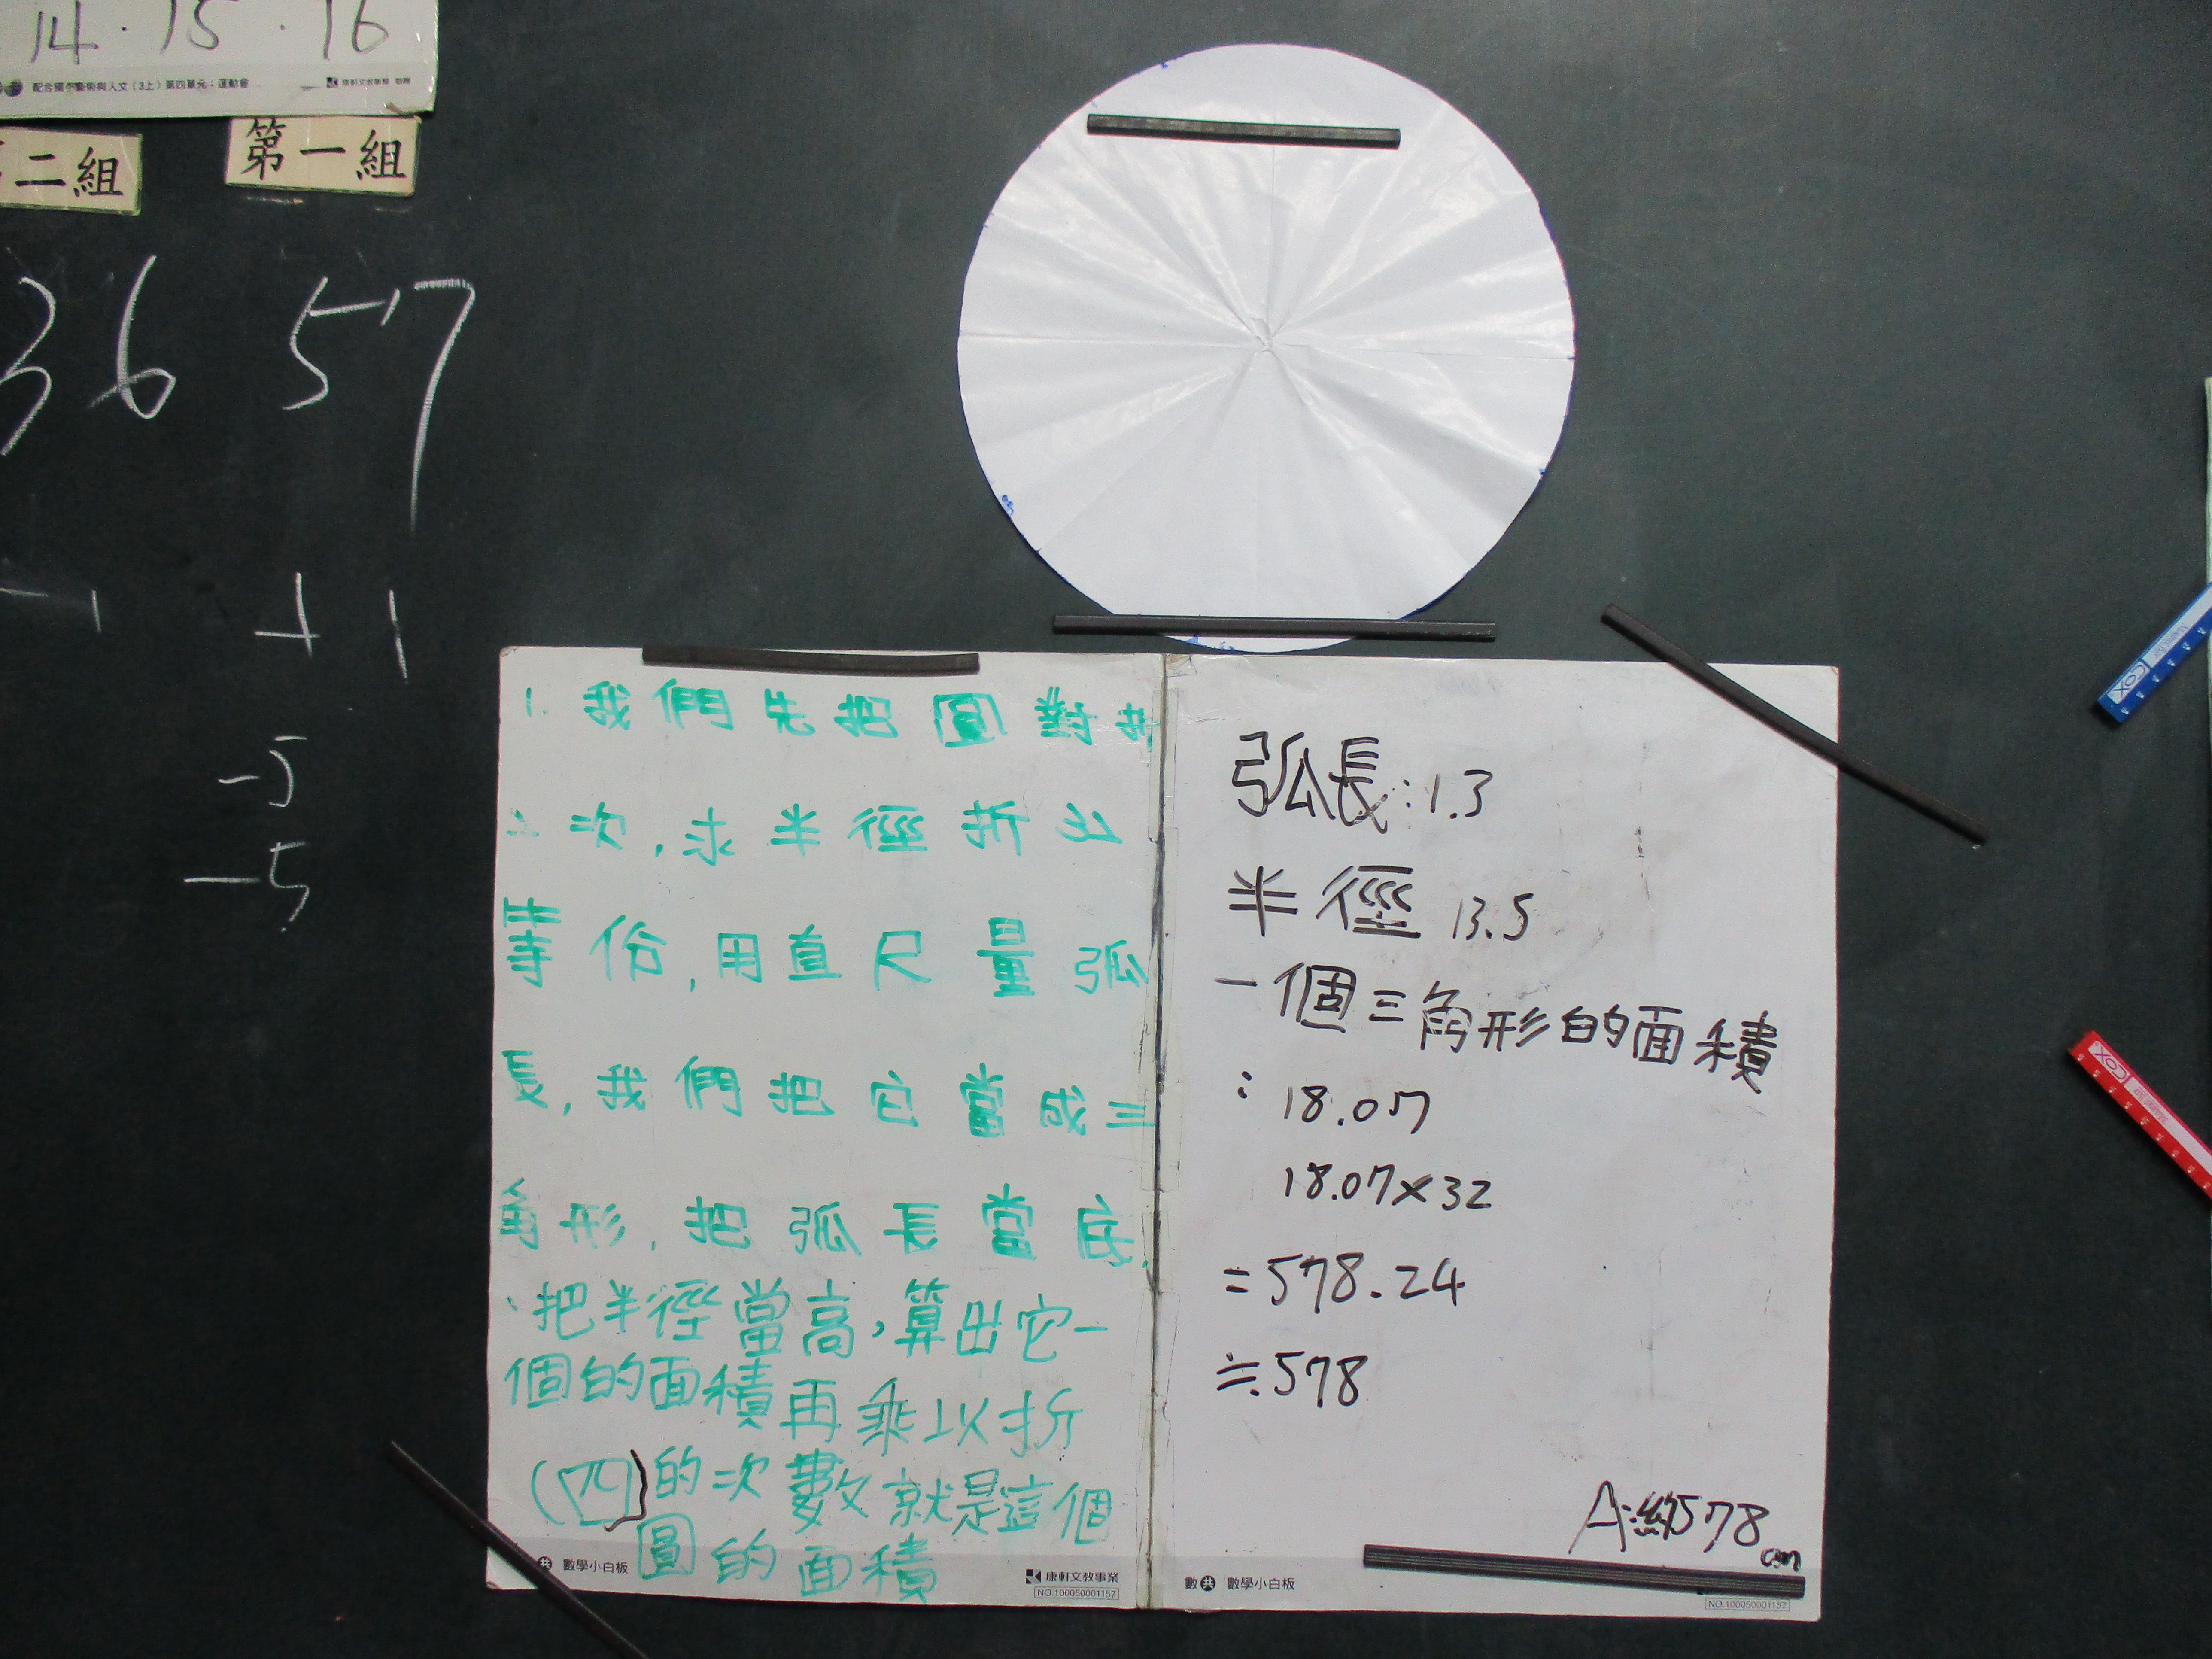 14.15.16
配合國小藝術與人文(3上)第四單元:運動會
康軒文教事業
二組
第一組
36
57
-1
+1
-5
-5
1. 我們先把圓對折
次,求半徑折出
等份,用直尺量弧
長,我們把它當成三
角形,把弧長當底,
把半徑當高,算出它一
個的面積再乘以折
(四)的次數就是這個
圓的面積
共 數學小白板
康軒文教事業
NO.100050001157
弧長:1.3
半徑 13.5
一個三角形的面積
: 18.07
18.07×32
=578.24
≒578
A:約578cm
數 共 數學小白板
NO.100050001157
COX
COX